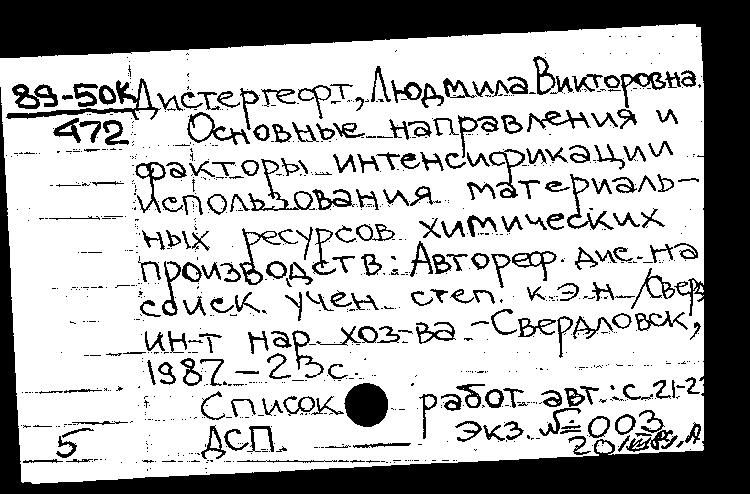 89-50К Дистергефт, Людмила Викторовна.
472 Основные направления и
факторы интенсификации
использования материаль-
ных ресурсов химических
производств: Автореф. дис. на
соиск. учен. степ. к.э.н./Сверд
ин-т нар. хоз-ва.-Свердловск,
1987.-23с.
Список работ авт.: с. 21-23
5 ДСП. экз. № 003